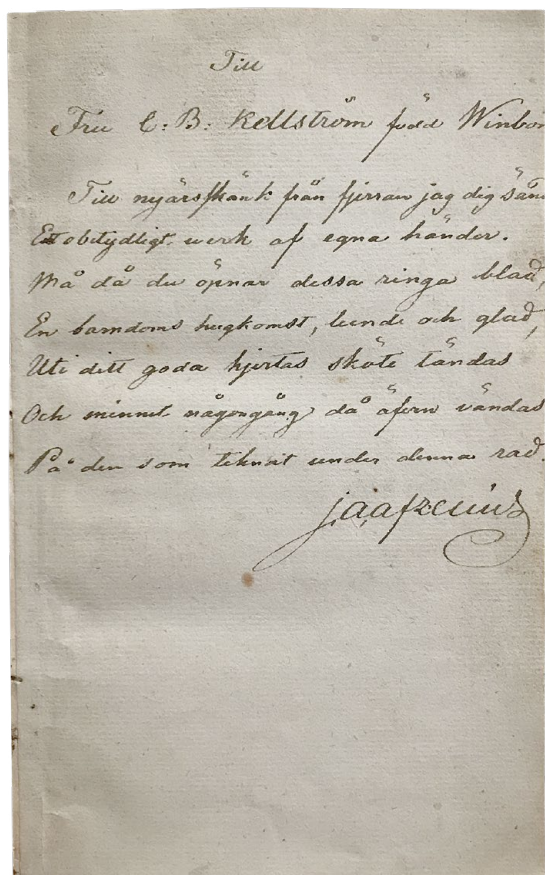 Till
Fru C: B: Kellström född Winbom
Till nyårsskänk från fjerran jag dig sän
Ett obetydligt werk af egna händer.
Må då du öpnar dessa ringa blad,
En barndoms hugkomst, leende och glad,
Uti ditt goda hjertas sköte tändas
Och minnet någongång då äfven vändas
På den som teknat under denna rad.
J. A. Afzelius